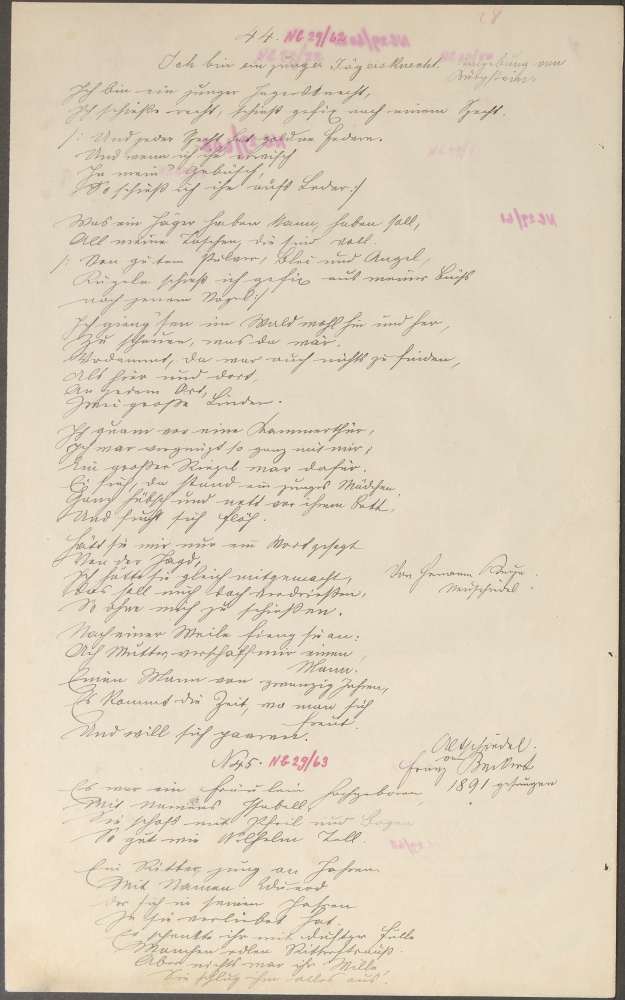 28
44. NG 29/62
Ich bin ein junger Jägersknecht. Umgebung von
Ich bin ein junger Jägersknecht,
Ich schieße recht, schieß gefix nach einem Specht.
/: Und jeder Specht hat goldne Federn.
Und wenn ich ihn erwisch
In mein Gebüsch,
So schieß ich ihn aufs Leder:/
Was ein Jäger haben kann, haben soll,
All meine Taschen, die sind voll.
/: Von gutem Pulver, Blei und Angel,
Kugeln schieß ich gefix aus meiner Büchs
nach jenem Vogel:/
Ich gieng in Wald wohl hin und her,
Zu schauen, was da wär.
Verdammt, da war auch nichts zu finden,
Als hier und dort,
An jedem Ort,
Zwei große Linden.
Ich kam vor eine Kammerthür,
Ich war vergnügt so ganz mit mir,
Ein großer Riegel war dafür.
Ei seht, da stand ein junges Mädchen,
Ganz hübsch und nett vor ihrem Bett,
Und sucht sich Flöh.
Hätt sie mir nur ein Wort gesagt
Von der Jagd,
Ich hätte sie gleich mitgemacht,
Das soll mich doch verdrießen,
So ohne mich zu schießen.
Von Hermann
Nach einer Weile fieng sie an:
Ach Mutter verschaff mir einen
Mann.
Einen Mann von zwanzig Jahren,
Es kommt die Zeit, wo man sich
freut
Und will sich paaren.
No 45. NG 29/63
von
Franz
1891 gesungen
Es war ein Fräulein hochgeboren
Mit Namens Isabell
Sie schoß mit Pfeil und Bogen
So gut wie Wilhelm Tell.
Ein Ritter jung an Jahren
Mit Namen Eduard
Der sich in seinem Herzen
In sie verliebet hat.
Er schenkte ihr mit duftger Fülle
Manchen edlen Ritterstrauß.
Aber nichts war ihr Wille,
Sie schlug ihm alles aus.